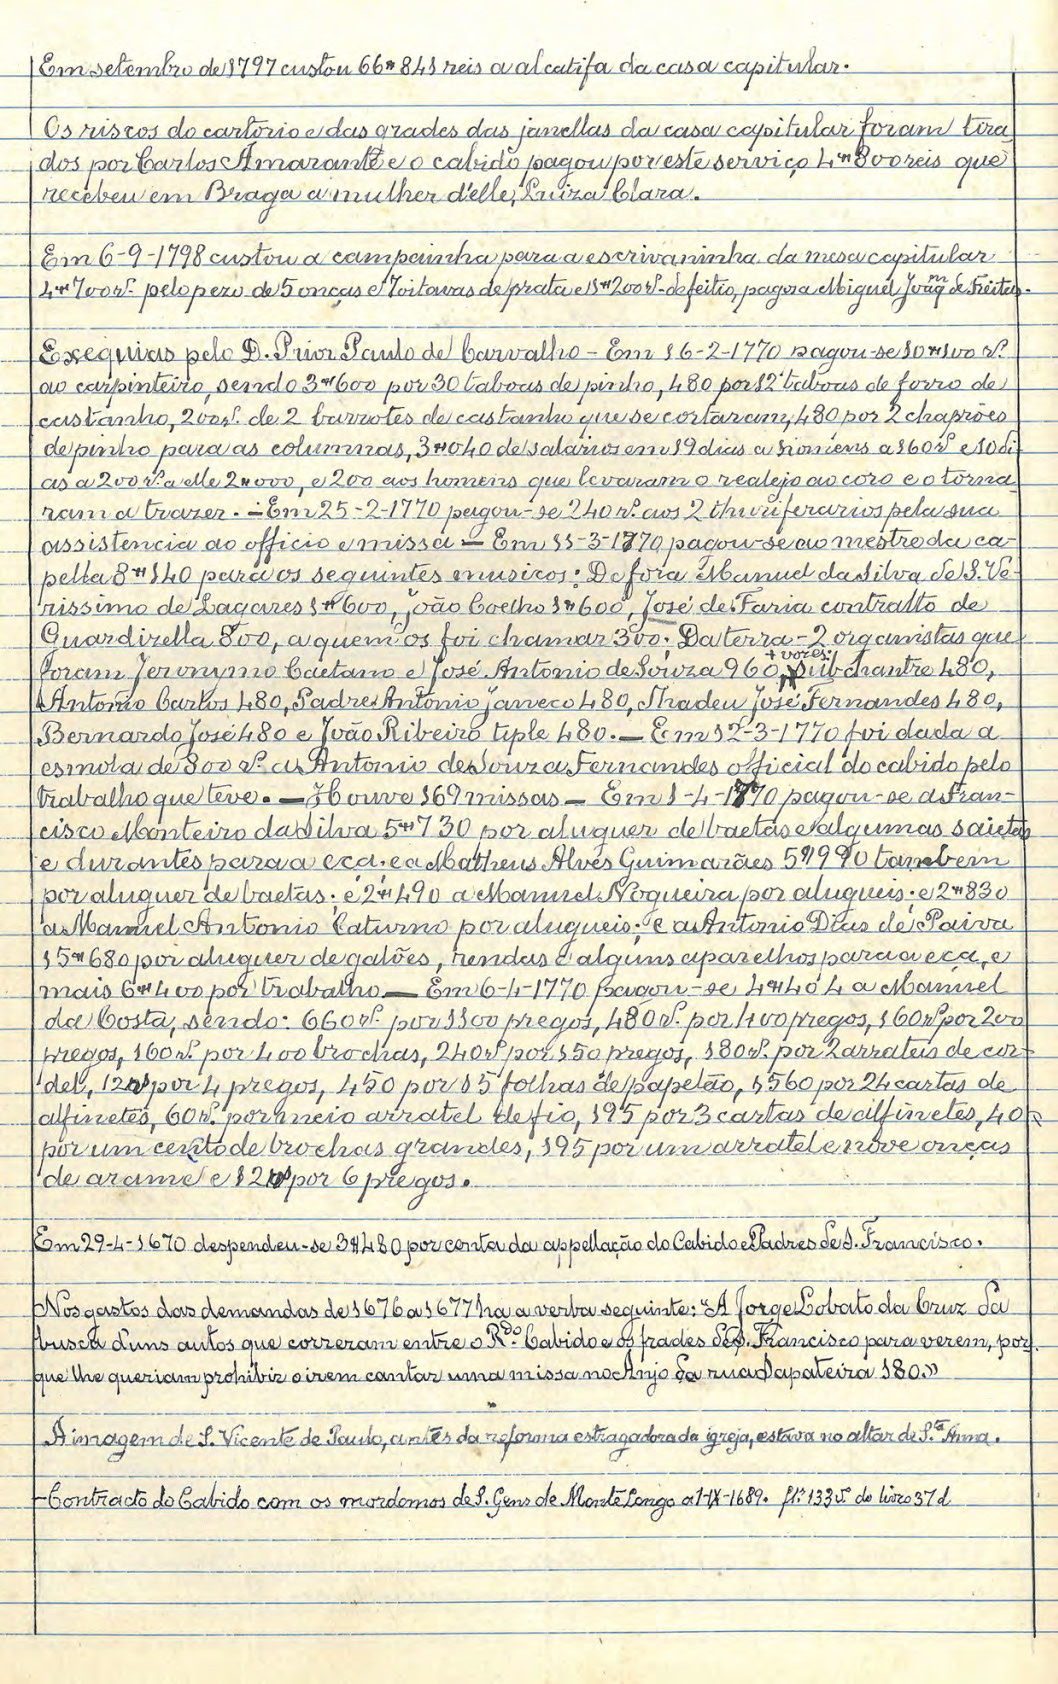 Em setembro de 1797 custou 66$841 reis a alcatifa da casa capitular.
Os riscos do cartorio e das grades das janellas da casa capitular foram tira
dos por Carlos Amarante e o cabido pagou por este serviço 4$800 reis que
recebeu em Braga a mulher d'elle, Luiza Clara.
Em 6-9-1798 custou a campainha para a escrivaninha da mesa capitular
4$700 rs. pelo pezo de 5 onças e 7 oitavas de prata e 1$200 rs. de feitio, pagos a Miguel Joaqm de Freitas.
Exequias pelo D. Prior Paulo de Carvalho - Em 16-2-1770 pagou-se 10$100 rs.
ao carpinteiro, sendo 3$600 por 30 taboas de pinho, 480 por 12 taboas de forro de
castanho, 200 rs. de 2 barrotes de castanho que se cortaram, 480 por 2 chaprões
de pinho para as columnas, 3$040 de salarios em 19 dias a homens a 160 rs. e 10 di
as a 200 rs. a elle 2$000, e 200 aos homens que levaram o realejo ao coro e o torna
ram a trazer. - Em 25-2-1770 pagou-se 240 rs. aos 2 thuriferarios pela sua
assistencia ao officio e missa - Em 11-3-1770 pagou-se ao mestre da ca-
pella 8$140 para os seguintes musicos: De fóra Manuel da Silva de S. Ve-
rissimo de Lagares 1$600, João Coelho 1$600, José de Faria contralto de
Guardizella 800, a quem os foi chamar 300; Da terra - 2 organistas que
foram Jeronymo Caetano e José Antonio de Souza 960, + vozes: Sub-chantre 480,
Antonio Carlos 480, Padre Antonio Janeco 480, Thadeu José Fernandes 480,
Bernardo José 480 e João Ribeiro tiple 480. - Em 12-3-1770 foi dada a
esmola de 800 rs. a Antonio de Souza Fernandes official do cabido pelo
trabalho que teve. - Houve 169 missas - Em 1-4-1770 pagou-se a Fran-
cisco Monteiro da Silva 5$730 por aluguer de baetas e algumas saietas
e durantes para a eça; e a Matheus Alves Guimarães 5$990 tambem
por aluguer de baetas; e 2$490 a Manuel Nogueira por alugueis; e 2$830
a Manuel Antonio Caturno por alugueis; e a Antonio Dias de Paiva
15$680 por aluguer de galões, rendas e alguns aparelhos para a eça, e
mais 6$400 por trabalho - Em 6-4-1770 pagou-se 4$404 a Manuel
da Costa, sendo: 660 rs. por 1100 pregos, 480 rs. por 400 pregos, 160 rs. por 200
pregos, 160 rs. por 400 brochas, 240 rs. por 150 pregos, 180 rs. por 2 arrateis de cor-
del, 12 rs por 4 pregos, 450 por 15 folhas de papelão, 1560 por 24 cartas de
alfinetes, 60 rs. por meio arratel de fio, 195 por 3 cartas de alfinetes, 40 rs
por um cento de brochas grandes, 195 por um arratel e nove onças
de arame e 12 rs por 6 pregos.
Em 29-4-1670 despendeu-se 3$480 por conta da appellação do Cabido e Padres de S. Francisco.
Nos gastos das demandas de 1676 a 1677 ha a verba seguinte: "A Jorge Lobato da Cruz da
busca d'uns autos que correram entre o Rdo. Cabido e os frades de S. Francisco para verem, por
que lhe queriam prohibir o irem cantar uma missa no Anjo da rua Sapateira 180."
A imagem de S. Vicente de Paulo, antes da reforma estragadora da igreja, estava no altar de S.ta Anna.
- Contracto do Cabido com os mordomos de S. Gens de Monte Longo a 1-IX-1689. fl. 133 v. do livro 37 d